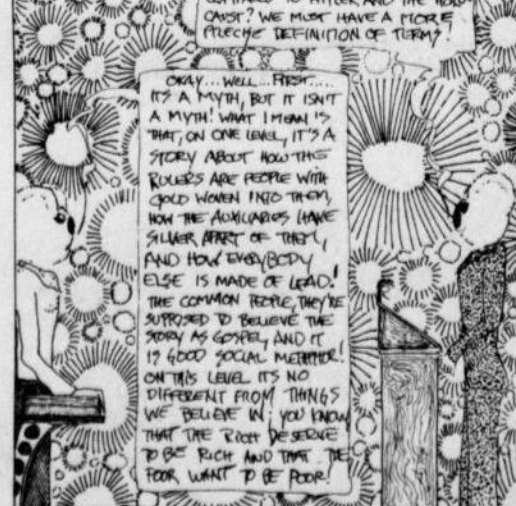 COMPARED TO HITLER AND THE HOLO-
CAUST? WE MUST HAVE A MORE
PRECISE DEFINITION OF TERMS!
OKAY... WELL... FIRST....
ITS A MYTH, BUT IT ISN'T
A MYTH! WHAT I MEAN IS
THAT, ON ONE LEVEL, IT'S A
STORY ABOUT HOW THE
RULERS ARE PEOPLE WITH
GOLD WOVEN INTO THEM,
HOW THE AUXILIARIES HAVE
SILVER APART OF THEM,
AND HOW EVERYBODY
ELSE IS MADE OF LEAD!
THE COMMON PEOPLE, THEY'RE
SUPPOSED TO BELIEVE THE
STORY AS GOSPEL, AND IT
IS GOOD SOCIAL METAPHOR!
ON THIS LEVEL ITS NO
DIFFERENT FROM THINGS
WE BELIEVE IN: YOU KNOW
THAT THE RICH DESERVE
TO BE RICH AND THAT THE
POOR WANT TO BE POOR!